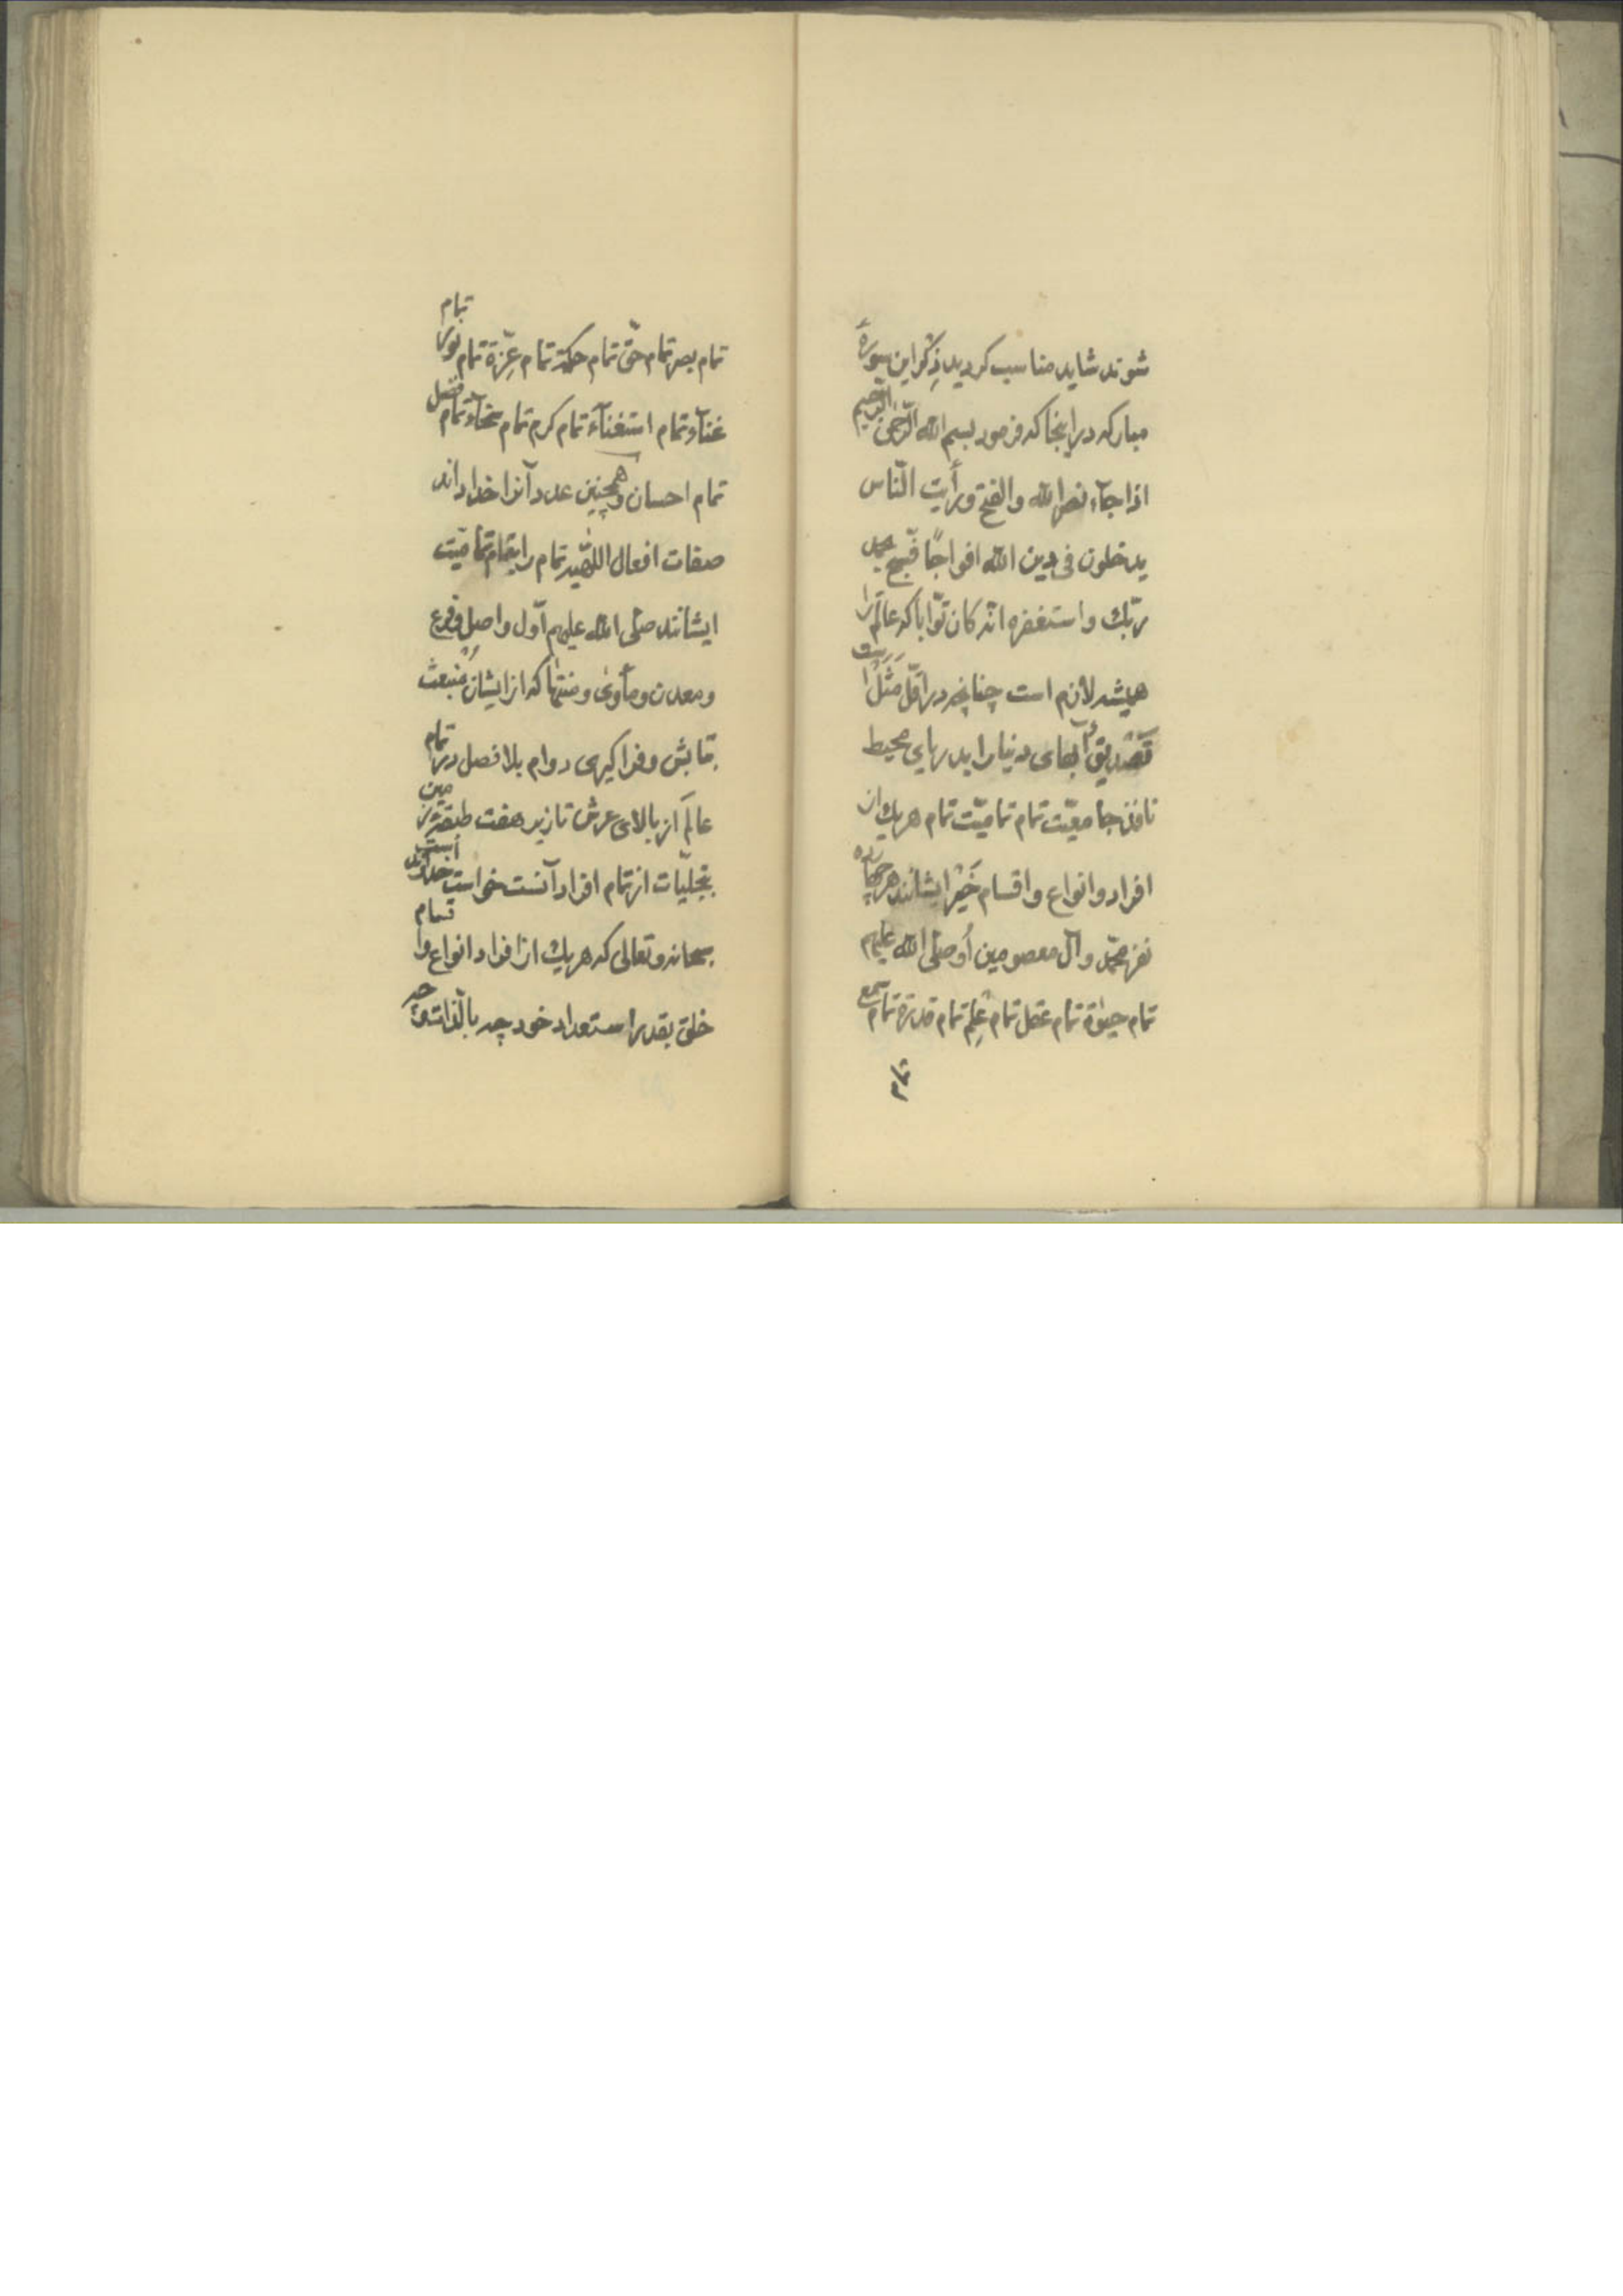 شوند شاید مناسب گردید ذِکر این سورهٔ
مبارکه در اینجا که فرمود بسم الله الرّحمٰن الرّحیم
اذا جآء نصر الله والفتح و رأیت النّاس
یدخلون فی دین الله افواجًا فسبّح بحمد
ربّک و استغفره انّه کان توّابا که عالم را
همیشه لازم است چنانچه در اقلّ مَثَل
آبهای دنیا را بدریای محیط
جامعیّت تمام تمامیّت تمام هر یک از
افراد و انواع و اقسام خَیْر ایشانند هر چهارده
نفر محمّد و آل معصومین أو صلّی الله علیهم
تمام حیوٰة تمام عقل تمام عِلم تمام قدرة تمام سمع
تمام
تمام بصر تمام حقّ تمام حکمة تمام عِزّة تمام نور تمام
غنآء تمام استغنآء تمام کرم تمام سخآء تمام فضل
تمام احسان و همچنین عدد آنرا خدا داند
صفات افعال اللّهیّه تمام را بتمام تمامیّت
ایشانند صلّی الله علیهم اوّل و اصل و فرع
و معدن و مأوی و منتها که از ایشان منبعث
بتابش و فراگیری دوام بلا فصل در تمام
عالَم از بالای عرش تا زیر هفت طبقه زمین
بتجلّیات از تمام افراد آنست خواست خداوند
سبحانه و تعالی که هر یک از افراد انواع تمام
خلق بقدر استعداد خود چه بالذّات